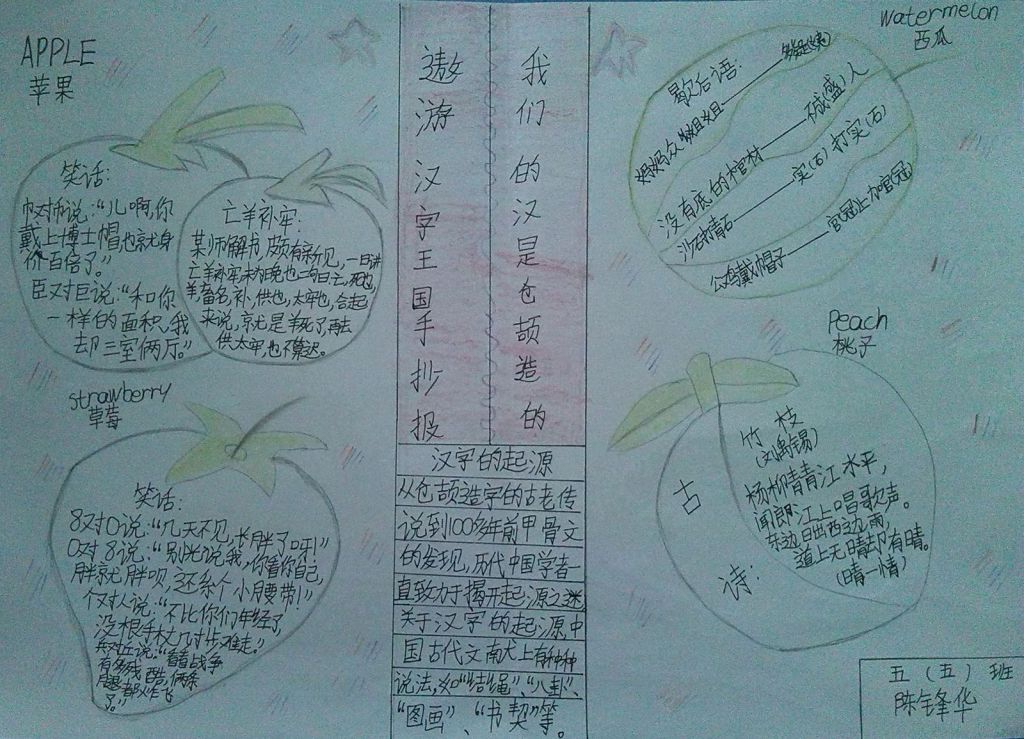 APPLE
苹果
笑话:
巾对币说:“儿啊,你
戴上博士帽也就身
价百倍了。”
臣对巨说:“和你
一样的面积,我
却三室俩厅。”
亡羊补牢:
某师解书,颇有新见,一日讲
亡羊补牢,未为晚也二句曰:亡,死也,
羊,畜名,补,供也,太牢也,合起
来说,就是羊死了再去
供太牢,也不算迟。
strawberry
草莓
笑话:
8对0说:“几天不见,长胖了呀!”
0对8说:“别光说我,你看你自己,
胖就胖呗,还系个小腰带!”
个对人说:“不比你们年轻了,
没根手杖几寸步难走。”
兵对丘说:“看看战争
有多残酷,俩条
腿都炸飞
了。”
遨游汉字王国手抄报
我们的汉是仓颉造的
汉字的起源
从仓颉造字的古老传
说到100多年前甲骨文
的发现,历代中国学者一
直致力于揭开起源之迷
关于汉字的起源,中
国古代文献上有种种
说法,如“结绳”、“八卦”、
“图画”、“书契”等。
watermelon
西瓜
歇后语:
妈妈众“姐姐
没有底的棺材——碱(盛)人
沙石打青石——实(石)打实(石)
公鸡戴帽子——官冠上加官(冠)
Peach
桃子
古诗:
竹枝
(刘禹锡)
杨柳青青江水平,
闻郎江上唱歌声。
东边日出西边雨,
道上无晴却有晴。
(晴—情)
五(五)班
陈锋华